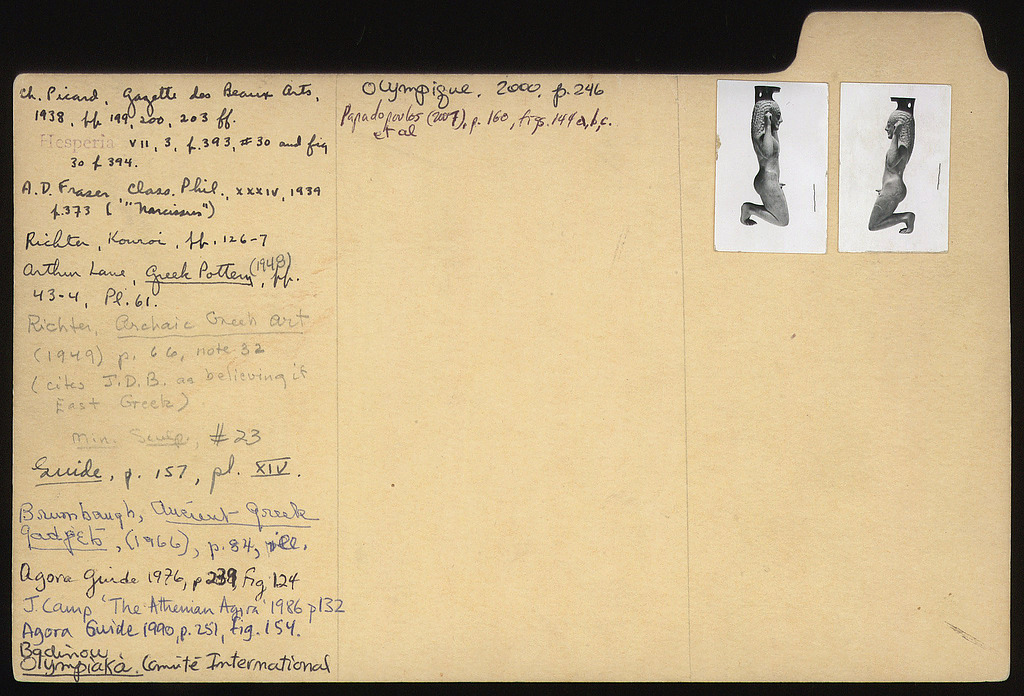 Ch. Picard, Gazette des Beaux Arts,
1938, pp. 199, 200, 203 ff.
Hesperia VII, 3, p.393, #30 and fig
30 p. 394.
A.D. Fraser, Class. Phil., XXXIV, 1939
p.373 ("Narcissus")
Richter, Kouroi, pp. 126-7
Arthur Lane, Greek Pottery (1948), pp.
43-4, Pl. 61.
Richter, Archaic Greek Art
(1949) p. 66, note 32
(cites J.D.B. as believing it
East Greek)
Min. Sculp., #23
Guide, p. 157, pl. XIV.
Brumbaugh, Ancient Greek
Gadgets, (1966), p. 84, ill.
Agora Guide 1976, p 239, fig 124
J. Camp 'The Athenian Agora' 1986 p132
Agora Guide 1990, p. 251, fig. 154.
Badinou
Olympiaka. Comité International
Olympique. 2000. p. 246
Papadopoulos (2007), p. 160, figs. 149a,b,c.
et al